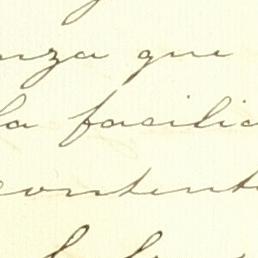 nza que
la facilid
content